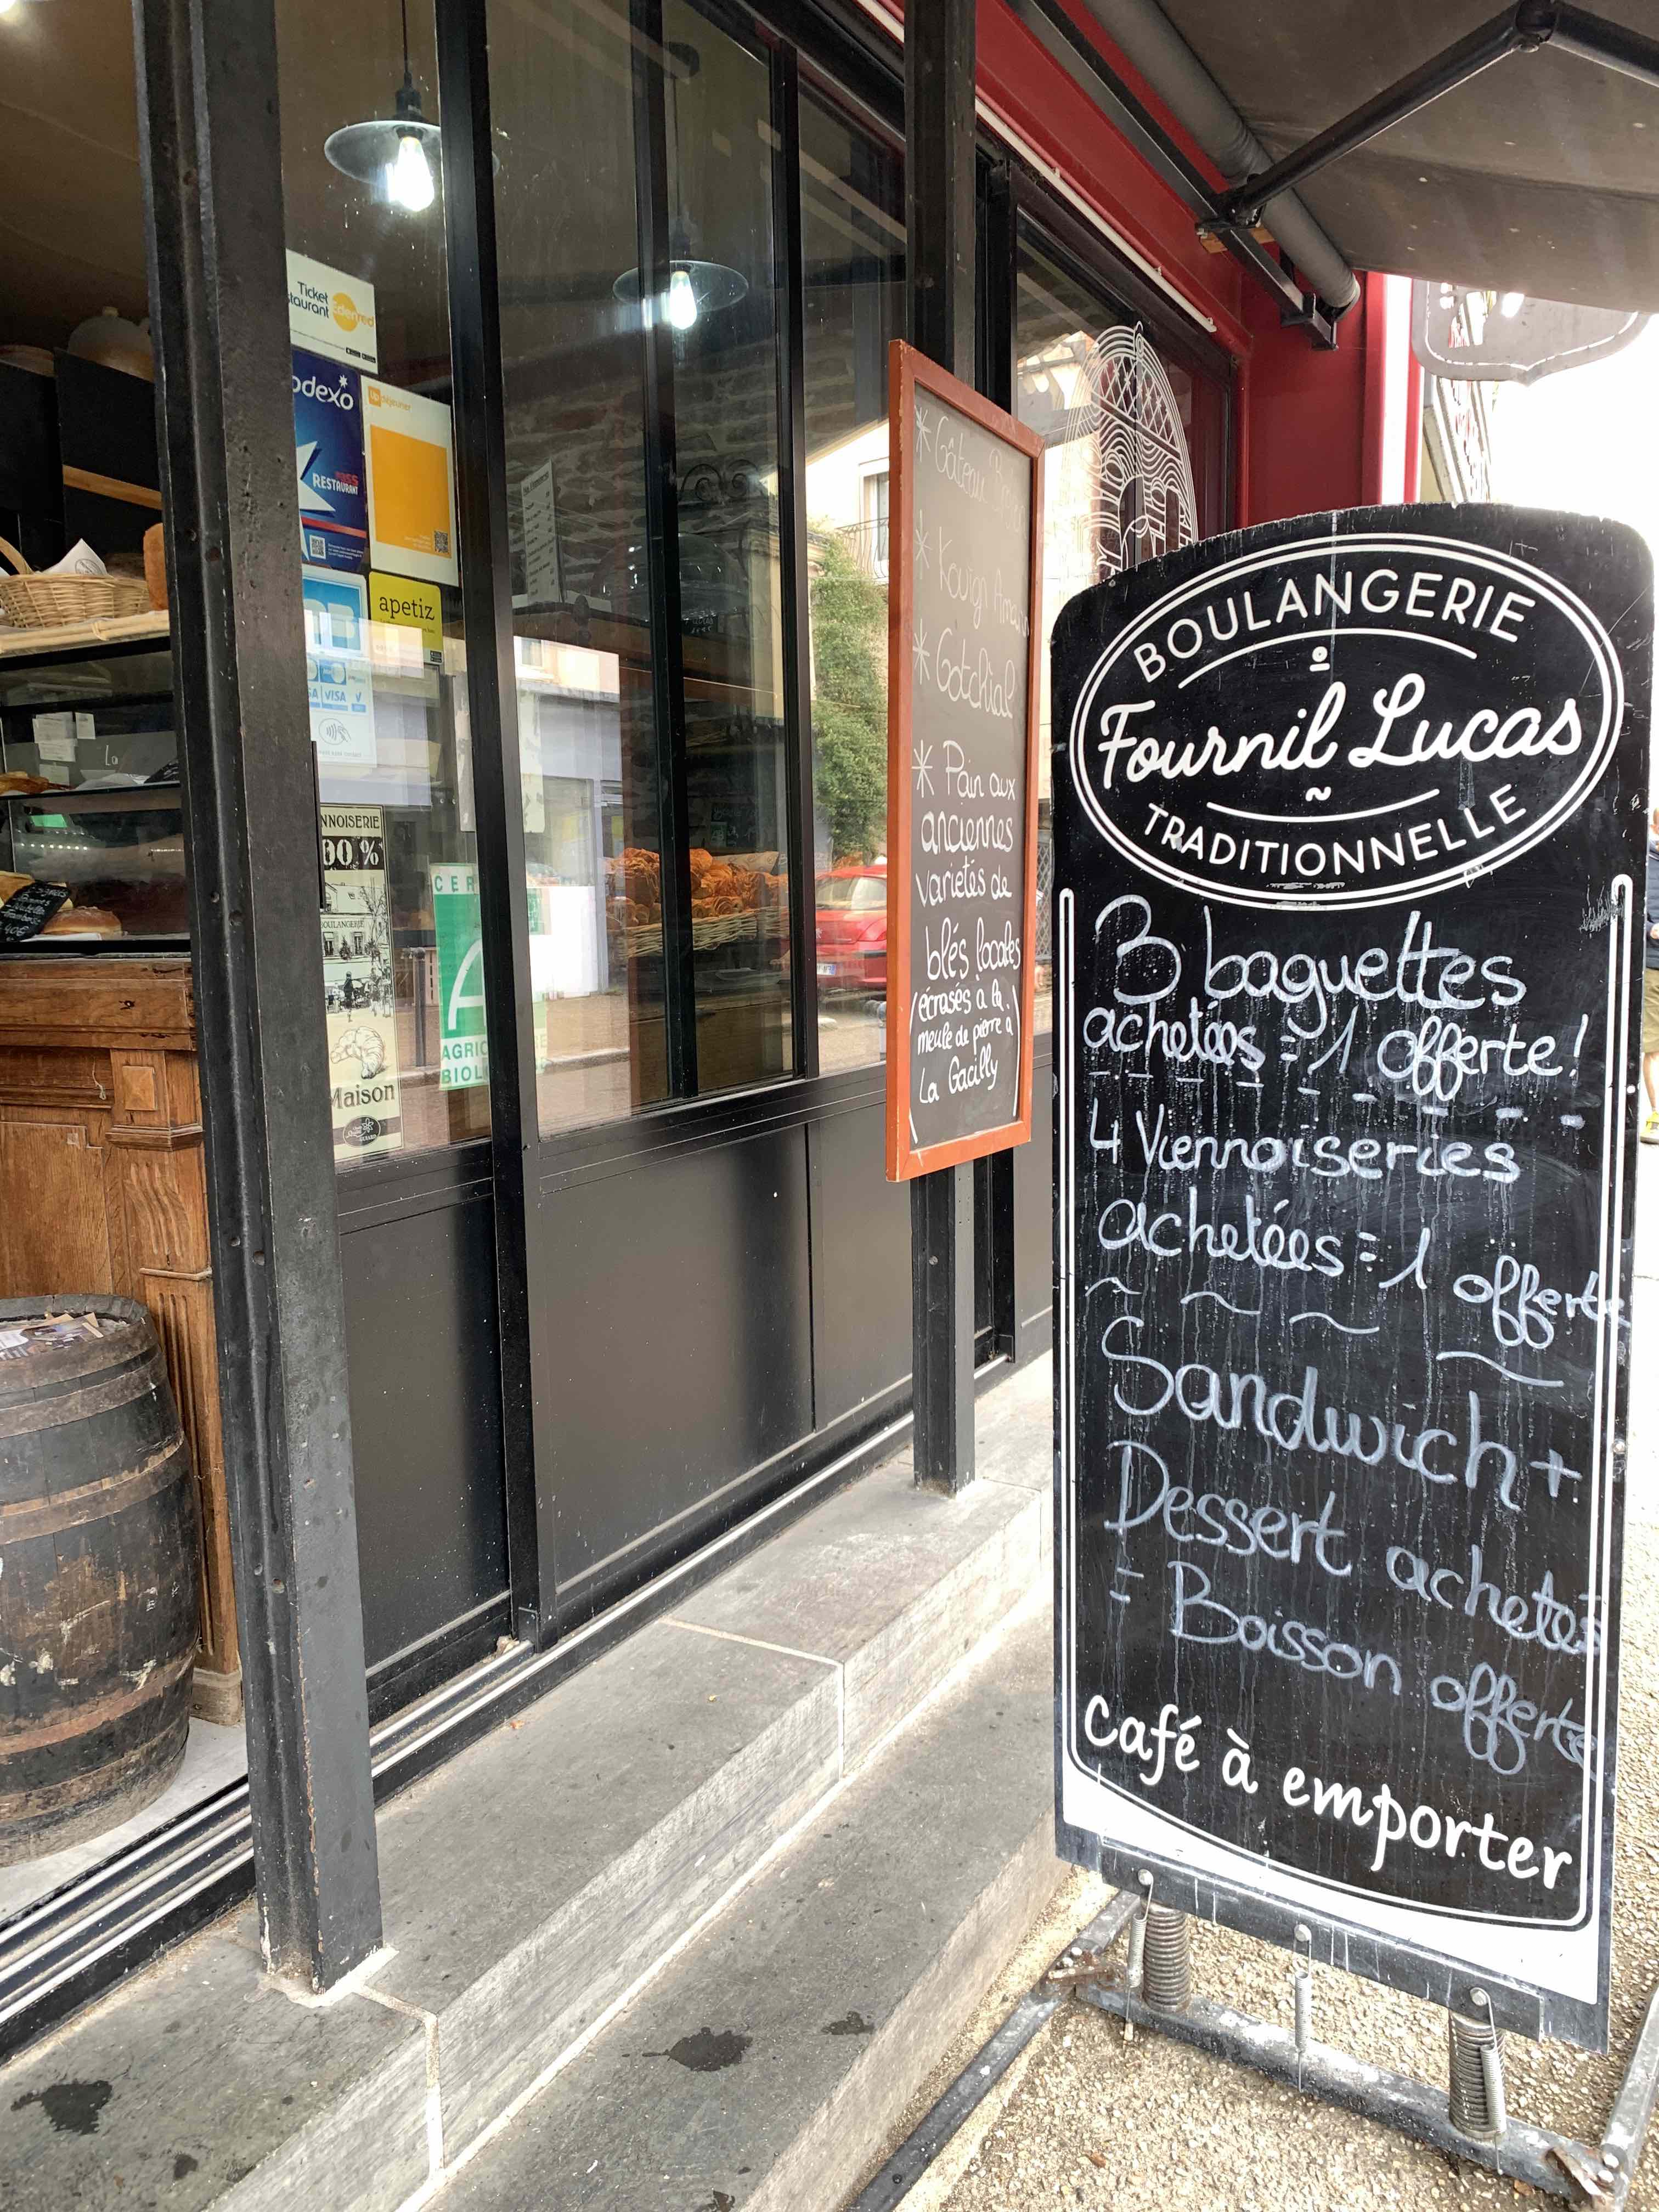 Ticket
Edenred
RESTAURANT
apetiz
VISA
La
100 %
BOULANGERIE
Maison
* Gâteau
* Kouign Amann
* Gotchial
* Pain aux
anciennes
variétés de
blés locales
(écrasés à la
meule de pierre à
La Gacilly)
BOULANGERIE
Fournil Lucas
TRADITIONNELLE
3 baguettes
achetées = 1 offerte!
4 Viennoiseries
achetées = 1 offerte
Sandwich +
Dessert achetés
= Boisson offerte
Café à emporter